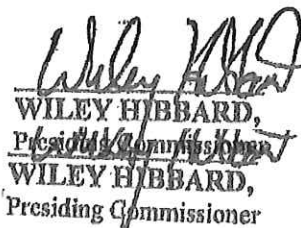 Wiley Hibbard
WILEY HIBBARD,
Presiding Commissioner
Wiley Hibbard
WILEY HIBBARD,
Presiding Commissioner